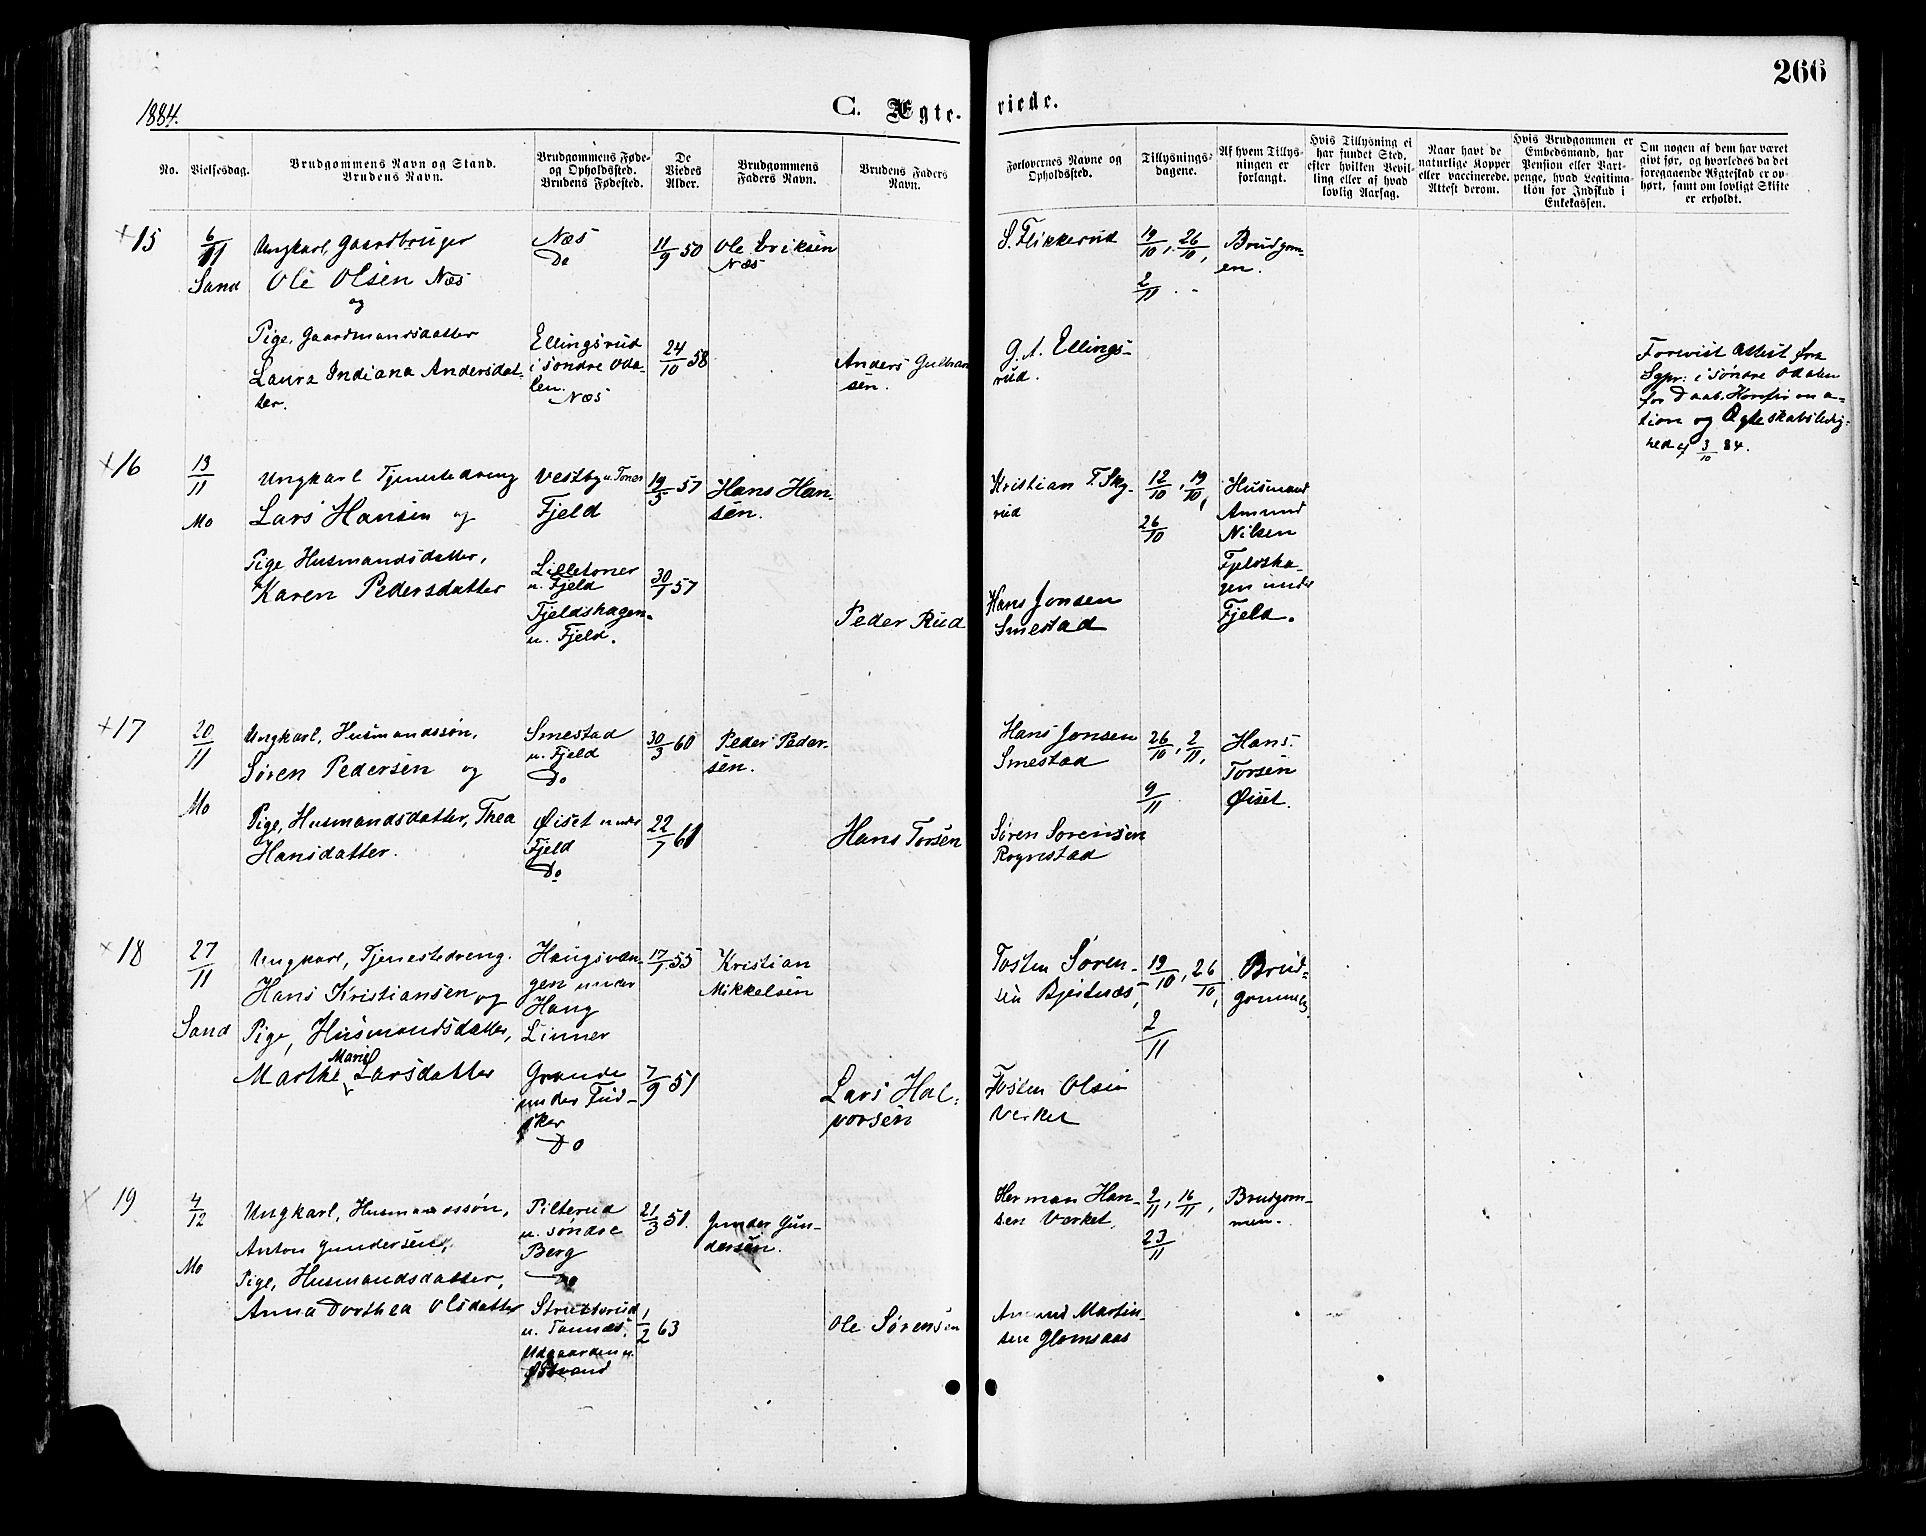 266
1884.
C. Ægte- viede.
No.
Vielsesdag.
Brudgommens Navn og Stand.
Brudens Navn.
Brudgommens Føde-
og Opholdssted.
Brudens Fødested.
De
Viedes
Alder.
Brudgommens
Faders Navn.
Brudens Faders
Navn.
Forlovernes Navne og
Opholdssted.
Tillysnings-
dagene.
Af hvem Tillys-
ningen er
forlangt.
Hvis Tillysning ei
har fundet Sted,
efter hvilken Bevil-
ling eller af hvad
lovlig Aarsag.
Naar havt de
naturlige Kopper
eller vaccinerede.
Attest derom.
Hvis Brudgommen er
Embedsmand, har
Pension eller Vart-
penge, hvad Legitima-
tion for Indskud i
Enkekassen.
Om nogen af dem har været
givt før, og hvorledes da det
foregaaende Ægteskab er op-
hørt, samt om lovligt Skifte
er erholdt.
+15
6/11
Sand
Ungkarl, Gaardbruger
Ole Olsen Næs
og
Pige, Gaardmandsdatter
Laura Indiana Andersdat-
ter.
Næs
Do
Ellingsrud
i søndre Oda-
len.
Næs
11/9 50
24/10 58
Ole Eriksen
Næs
Anders Gulbran
sen.
S. Flikkerud
G. A. Ellings-
rud.
19/10, 26/10,
2/11
Brudgom-
en.
Forevist Attest fra
Sgpr. i søndre Odalen
for Daab, Konfirma-
tion og Ægteskabsledig-
hed af 3/10 84.
+16
13/11
Mo
Ungkarl Tjenestedreng
Lars Hansen og
Pige Husmandsdatter,
Karen Pedersdatter
Vestby u. Toner
Fjeld
Lilletoner
u. Fjeld
Fjeldshagen
u. Fjeld.
19/5 57
30/1 57
Hans Han-
sen.
Peder Rud
Kristian T. Sky-
rud
Hans Jonsen
Smestad
12/10, 19/10,
26/10
Husmand
Amund
Nilsen
Fjeldsha-
gen under
Fjeld.
+17
20/11
Mo
Ungkarl, Husmandssøn,
Søren Pedersen og
Pige, Husmandsdatter, Thea
Hansdatter.
Smestad
u. Fjeld
Do
Øiset under
Fjeld
Do
30/3 60
22/7 61
Peder Peder-
sen.
Hans Torsen
Hans Jonsen
Smestad
Søren Sorensen
Rognestad
26/10, 2/11,
9/11
Hans
Torsen
Øiset.
+18
27/11
Sand
Ungkarl, Tjenestedreng.
Hans Kristiansen og
Pige, Husmandsdatter,
Marie
Marthe Larsdatter
Haugsvan-
gen under
Haug
Linner
Grande
under Fud-
sker
Do
17/1 55
7/9 51
Kristian
Mikkelsen
Lars Hal-
vorsen
Tosten Søren-
sen Bjertnæs,
Tosten Olsen
Verket
19/10, 26/10,
2/11
Brud-
gommen.
19
4/12
Mo
Ungkarl, Husmandssøn,
Anton Gundersen,
Pige, Husmandsdatter,
Anna Dorthea Olsdatter
Pilterud
u. søndre
Berg
Do
Strutsrud
u. Tannæs,
Udgaarden u.
Østvand
21/3 51.
1/2 63
Gunder Gun-
dersen.
Ole Sørensen
Herman Han-
sen Værket.
Amund Martin-
sen Glomsaas
2/11, 16/11,
23/11
Brudgom-
men.